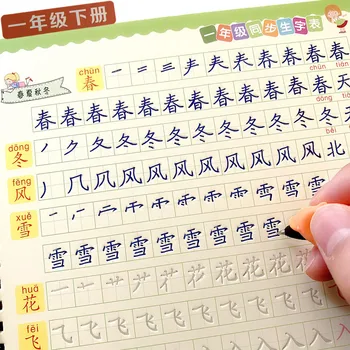 一年级下册
一年级同步生字表
chūn
春 一 二 三 夫 夫 春 春 春 春 春
春夏秋冬
chūn tiān
春 春 春 春 春 春 春 春 春 春 春 天
dōng
冬 丿 ク 夂 冬 冬 冬 冬 冬 冬 冬 冬 冬
fēng běi
风 丿 几 风 风 风 风 风 风 风 风 北
xuě
雪 雪 雪 雪 雪 雪 雪
雪 雪 雪 雪 雪 雪 雪 雪
huā
花 一 艹 花 花 花 花 花
fēi
飞 乙 飞 飞 飞 飞 飞 飞 入 入